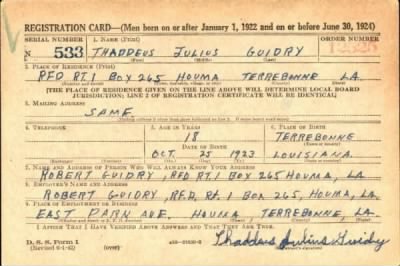 REGISTRATION CARD—(Men born on or after January 1, 1922 and on or before June 30, 1924)
SERIAL NUMBER 1. NAME (Print) ORDER NUMBER
N 533 THADDEUS JULIUS GUIDRY
2. PLACE OF RESIDENCE (Print)
RFD RT. 1 BOX 265 HOUMA TERREBONNE LA.
[THE PLACE OF RESIDENCE GIVEN ON THE LINE ABOVE WILL DETERMINE LOCAL BOARD
JURISDICTION; LINE 2 OF REGISTRATION CERTIFICATE WILL BE IDENTICAL]
3. MAILING ADDRESS
SAME
4. TELEPHONE 5. AGE IN YEARS 6. PLACE OF BIRTH
18 TERREBONNE
DATE OF BIRTH
OCT. 25 1923 LOUISIANA.
7. NAME AND ADDRESS OF PERSON WHO WILL ALWAYS KNOW YOUR ADDRESS
ROBERT GUIDRY, RFD. RT. 1 BOX 265 HOUMA, LA.
8. EMPLOYER'S NAME AND ADDRESS
ROBERT GUIDRY, R.F.D. RT. 1 BOX 265, HOUMA, LA.
9. PLACE OF EMPLOYMENT OR BUSINESS
EAST PARK AVE. HOUMA TERREBONNE, LA.
I AFFIRM THAT I HAVE VERIFIED ABOVE ANSWERS AND THAT THEY ARE TRUE.
D. S. S. Form 1
(Revised 6-1-42)
Thaddeus Julius Guidry